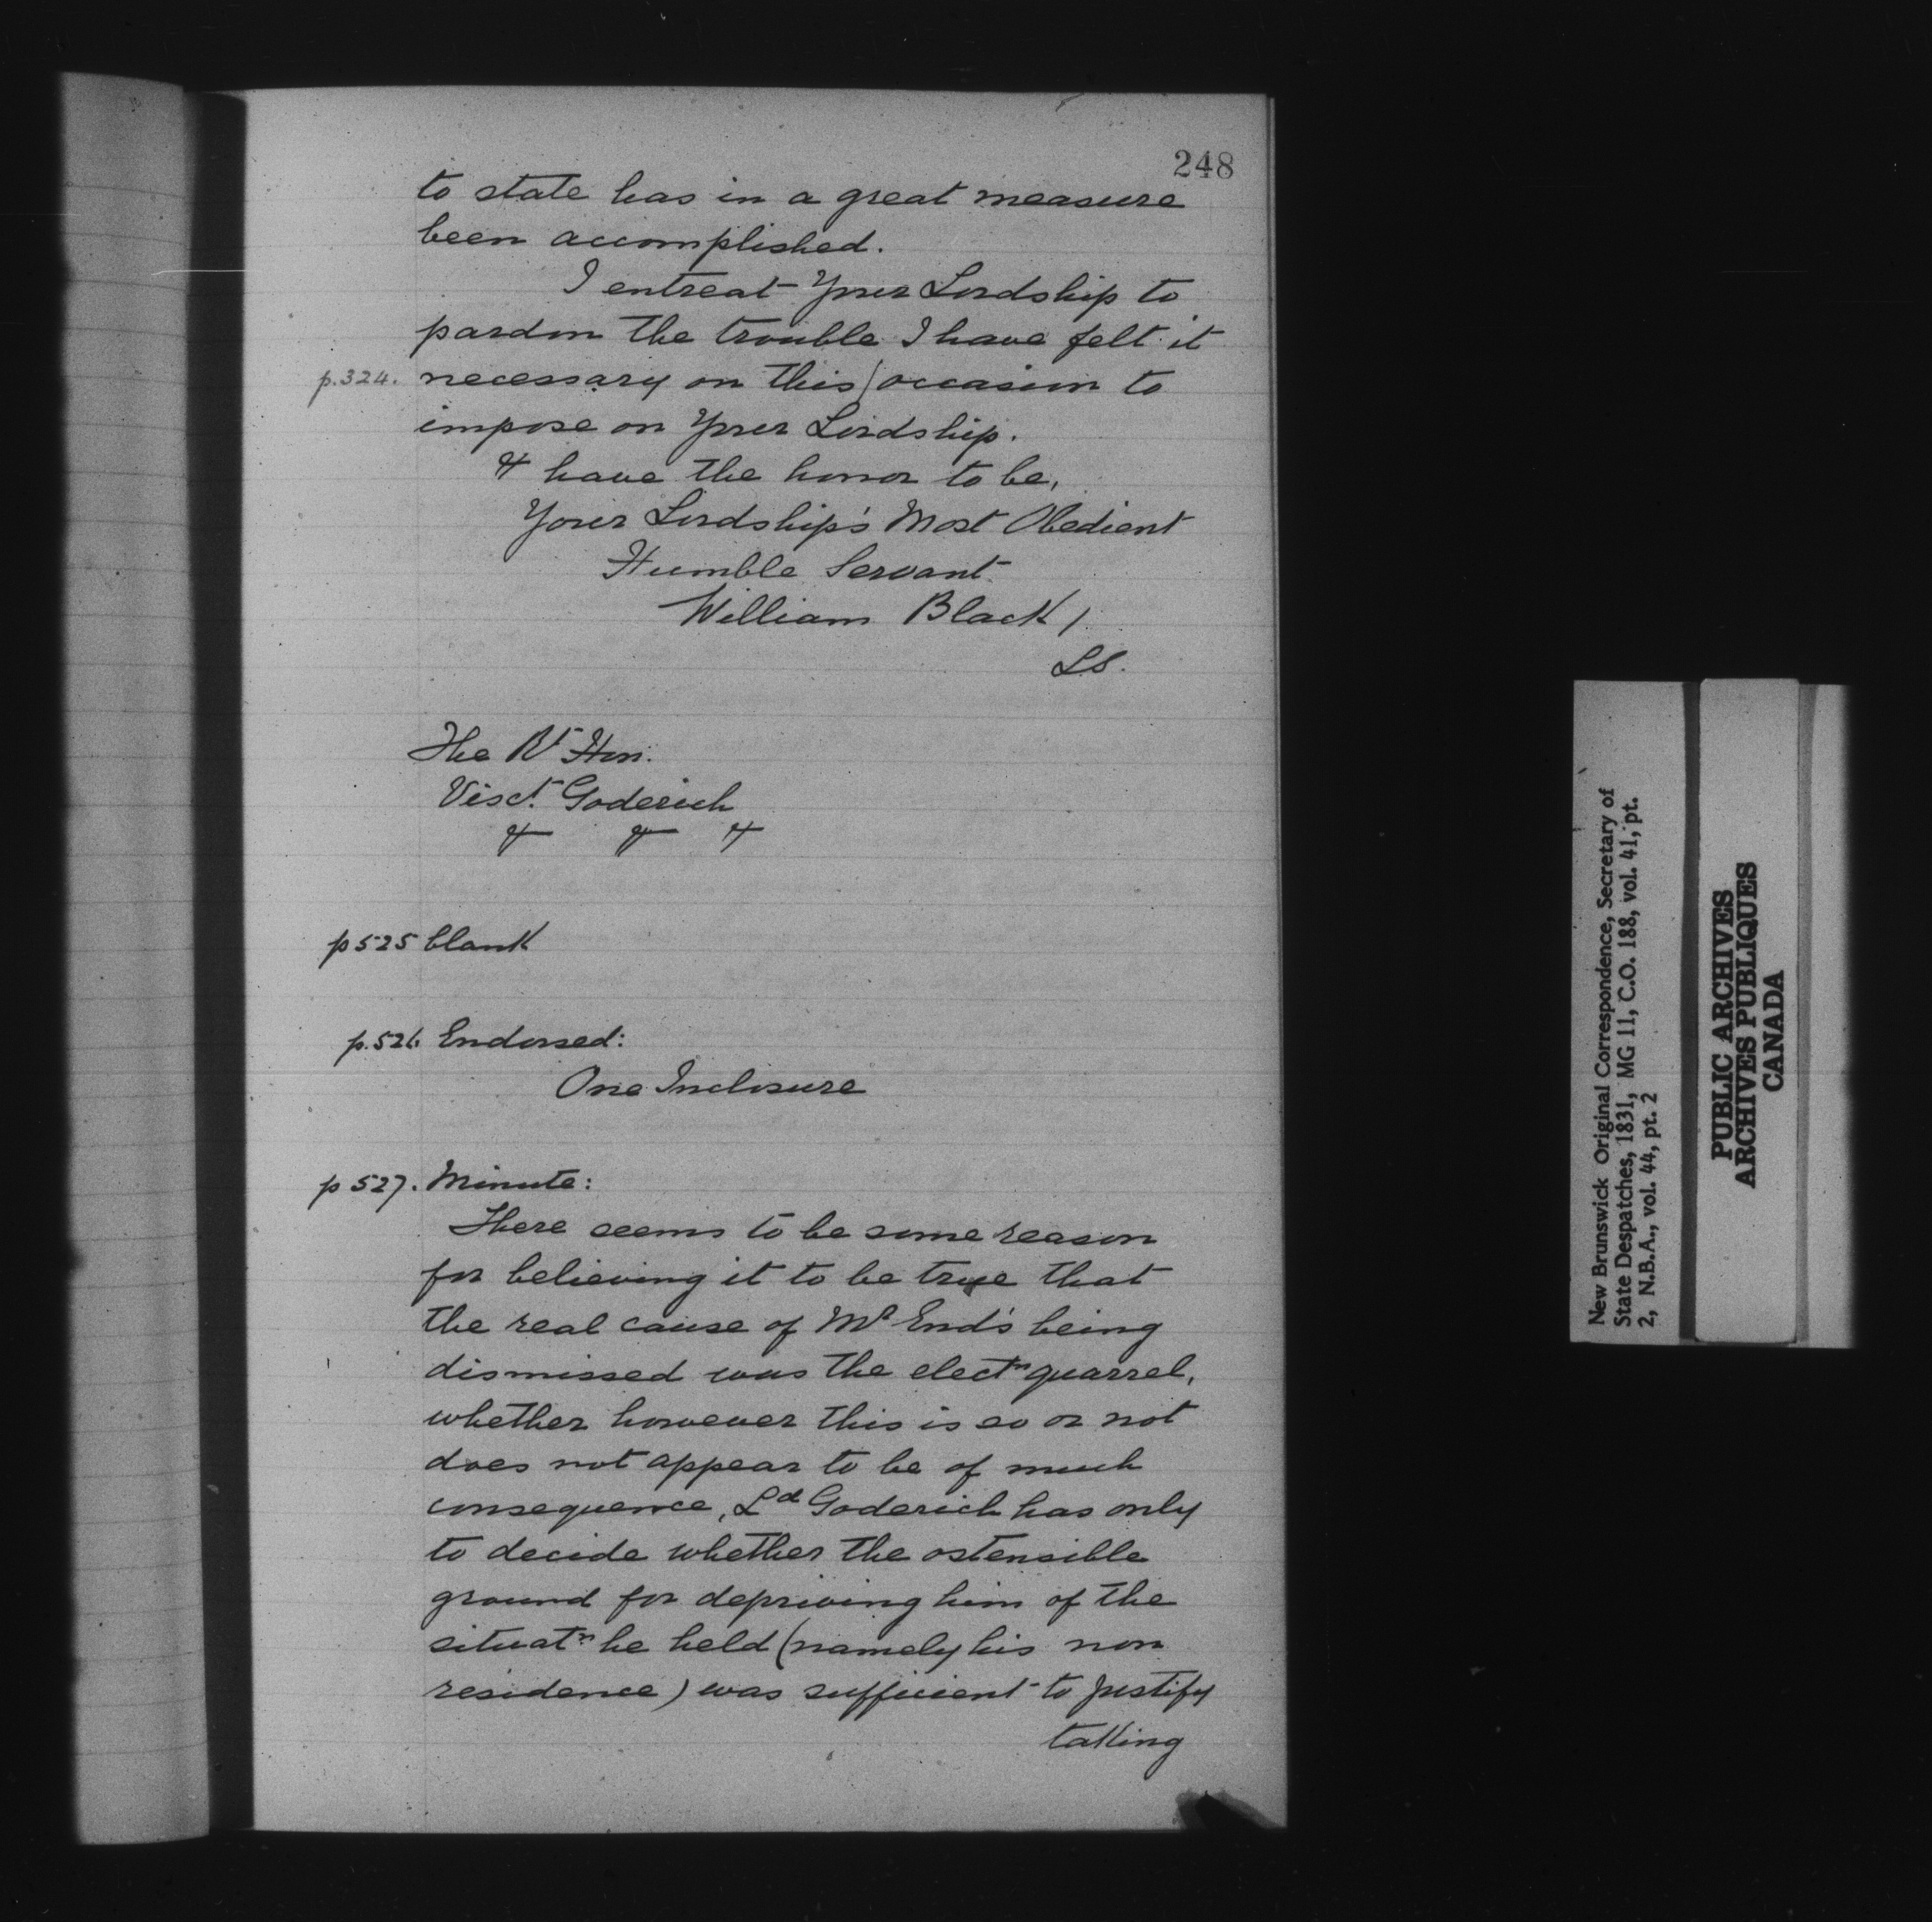 248
to state has in a great measure
been accomplished.
I entreat Your Lordship to
pardon the trouble I have felt it
p.324. necessary on this / occasion to
impose on Your Lordship.
& have the honor to be,
Your Lordship's Most Obedient
Humble Servant
William Black /
LS.
The Rt Hon.
Visct. Goderich
& & &
p525 blank
p.526. Endorsed:
One Inclosure
p527. Minute:
There seems to be some reason
for believing it to be true that
the real cause of Mr End's being
dismissed was the electn quarrel,
whether however this is so or not
does not appear to be of much
consequence, Ld Goderich has only
to decide whether the ostensible
ground for depriving him of the
situatn he held (namely his non
residence) was sufficient to justify
taking
New Brunswick Original Correspondence, Secretary of
State Despatches, 1831, MG 11, C.O. 188, vol. 41, pt.
2, N.B.A., vol. 44, pt. 2
PUBLIC ARCHIVES
ARCHIVES PUBLIQUES
CANADA